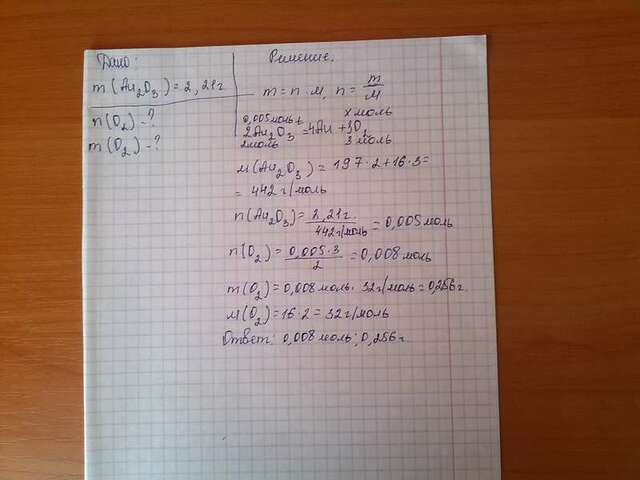 Дано:
m(Au2O3)=2,21г
n(O2)-?
m(O2)-?
Решение.
m=n·M, n=m/M
0,005моль t x моль
2Au2O3=4Au+3O2
2моль 3 моль
M(Au2O3)=197·2+16·3=
=442г/моль
n(Au2O3)=2,21г./442г/моль=0,005моль
n(O2)=0,005·3/2=0,008моль
m(O2)=0,008моль·32г/моль=0,256г.
M(O2)=16·2=32г/моль
Ответ: 0,008моль; 0,256г.